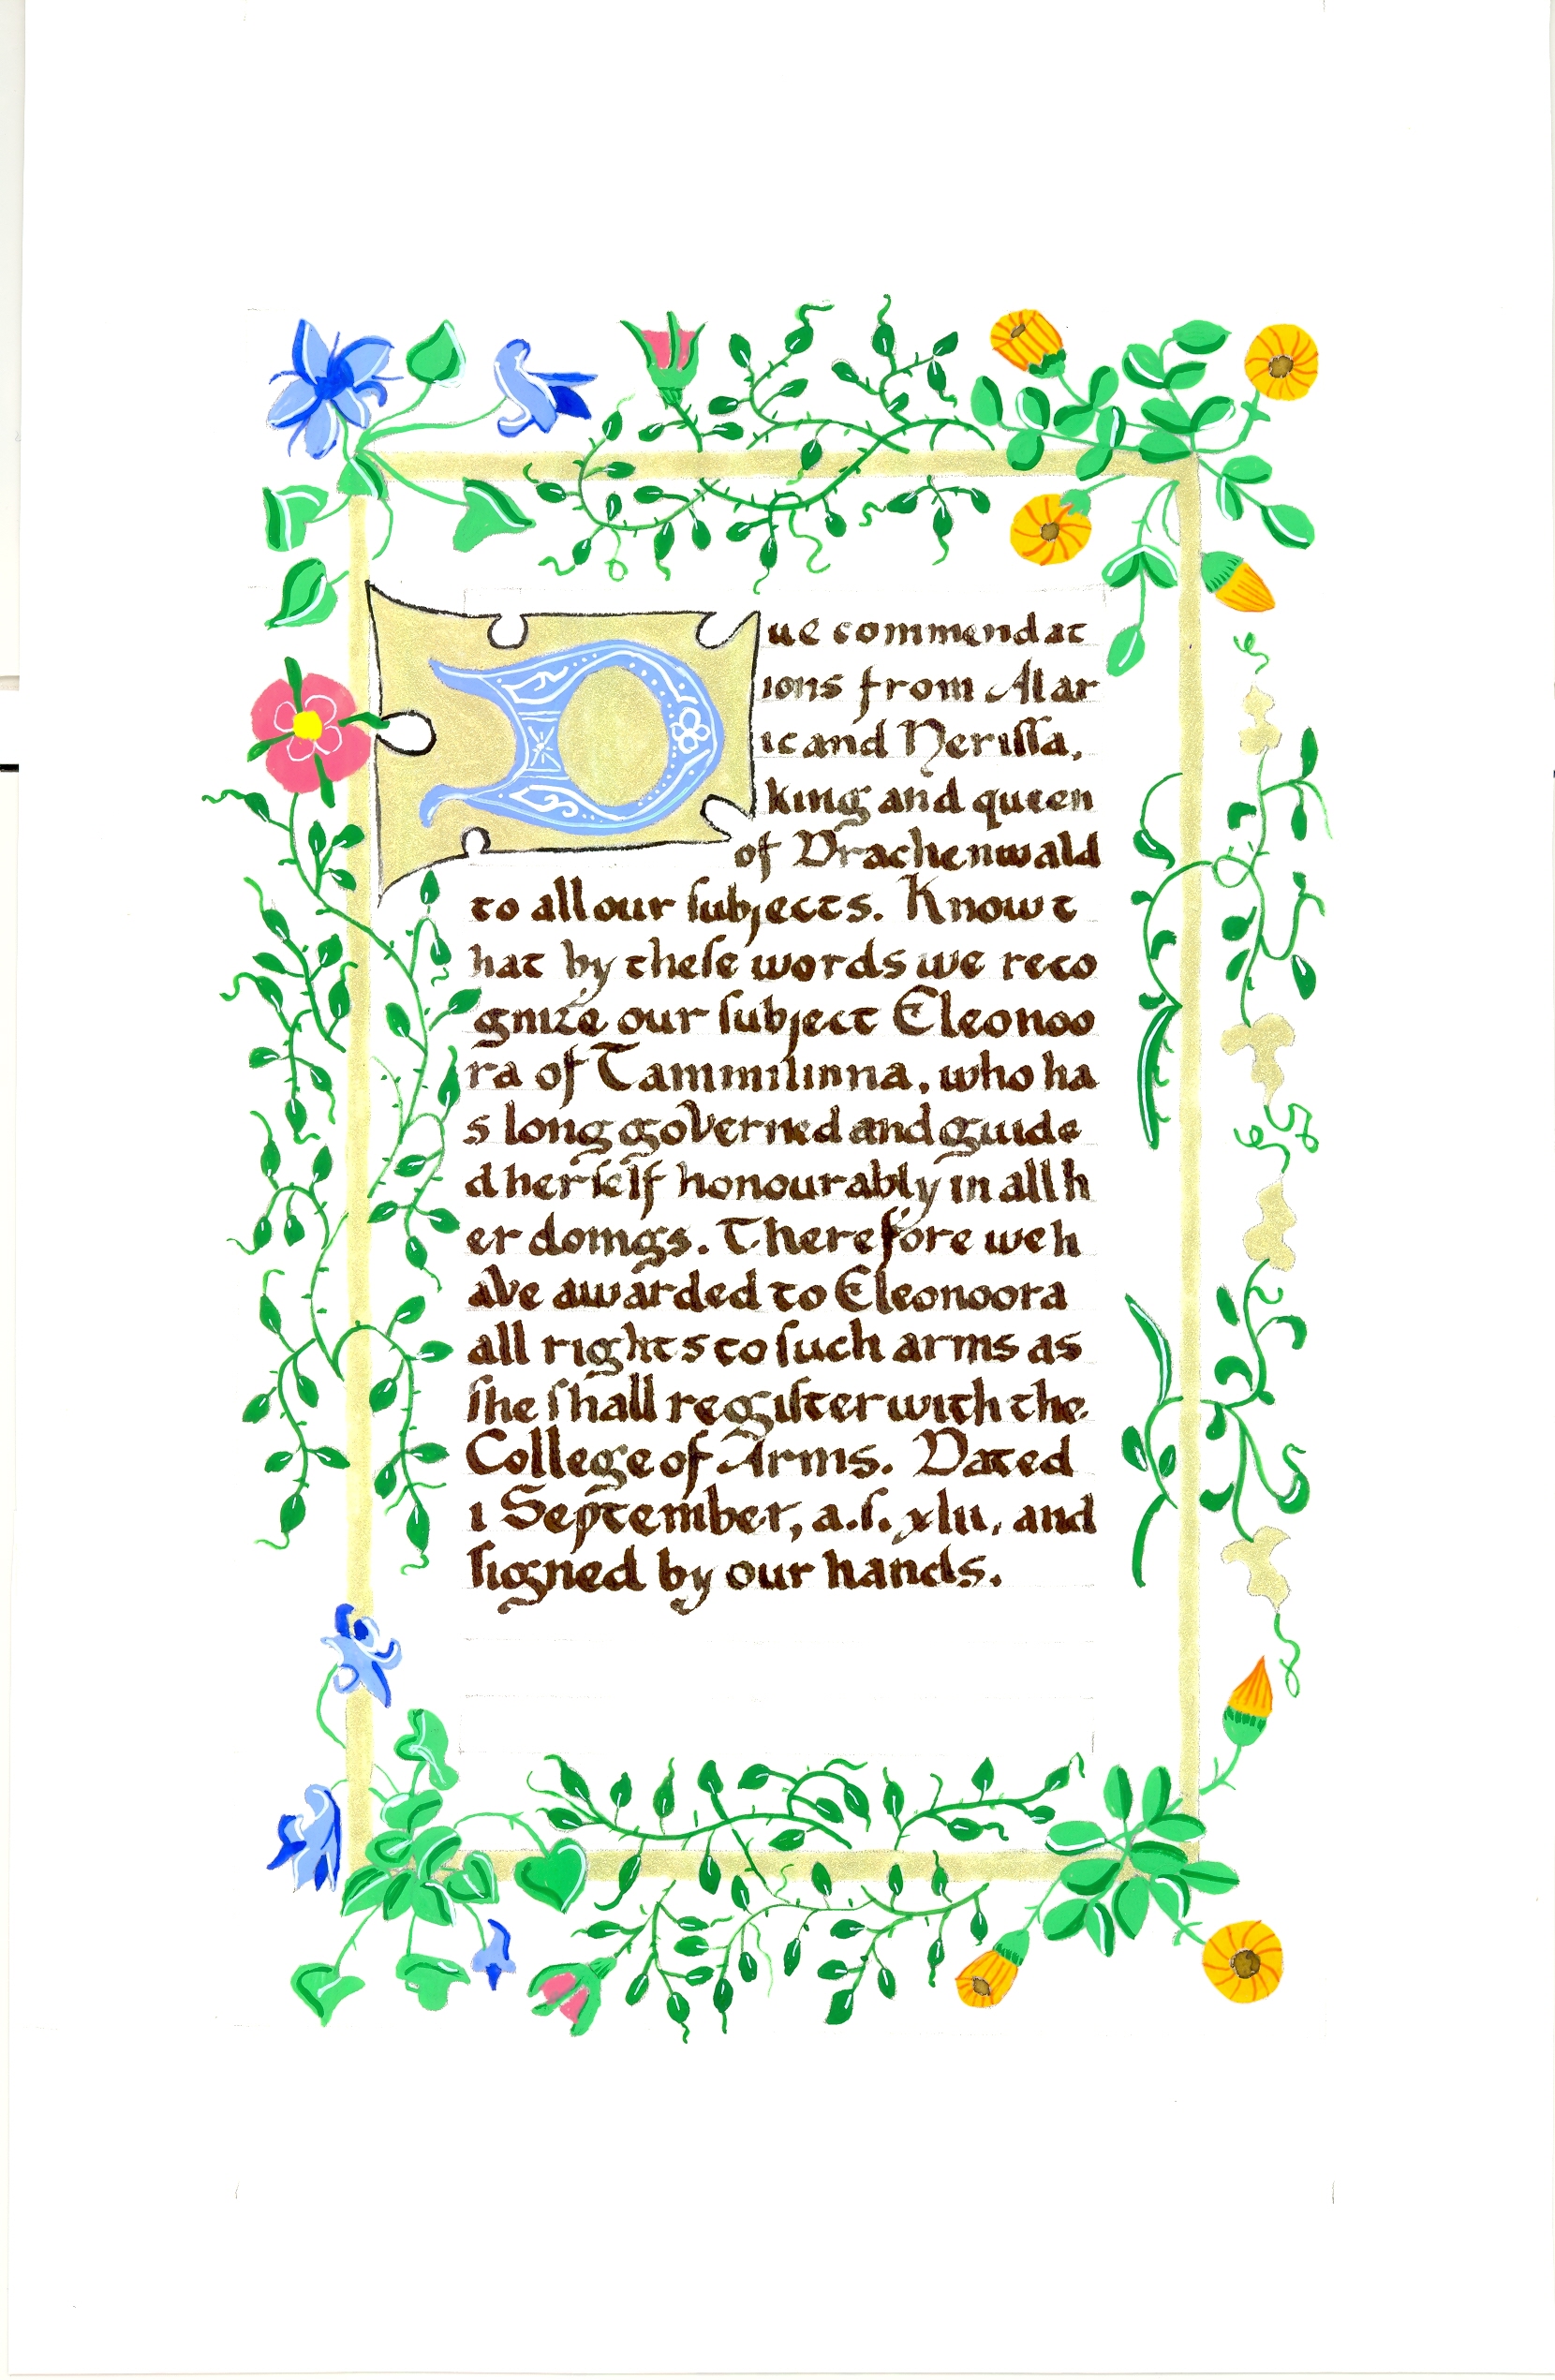 Due commendat
ions from Alar
ic and Nerissa,
king and queen
of Drachenwald
to all our ſubjects. Know t
hat by theſe words we reco
gnize our ſubject Eleonoo
ra of Tammilinna, who ha
s long governed and guide
d herſelf honourably in all h
er doings. Therefore we h
ave awarded to Eleonoora
all rights to ſuch arms as
ſhe ſhall regiſter with the
College of Arms. Dated
1 September, a.ſ. xlii, and
ſigned by our hands.